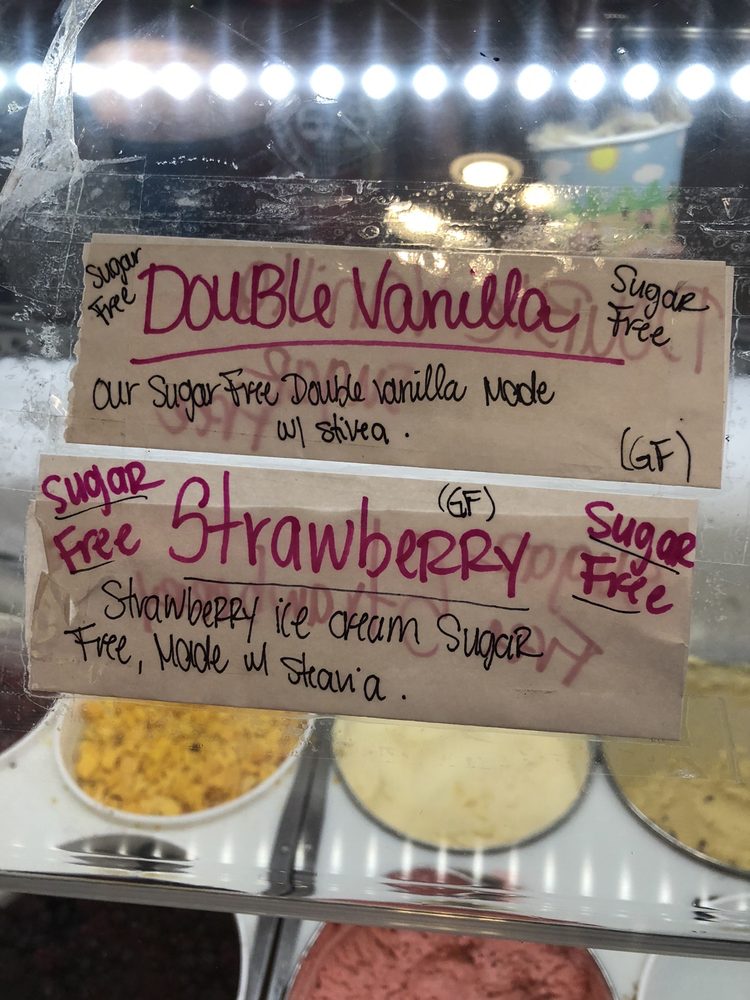 Sugar Free
Double Vanilla
Sugar Free
our Sugar Free Double vanilla Made
w/ stivea.
(GF)
Sugar Free
(GF)
Strawberry
Sugar Free
Strawberry ice cream Sugar
Free, Made w/ Steavia.